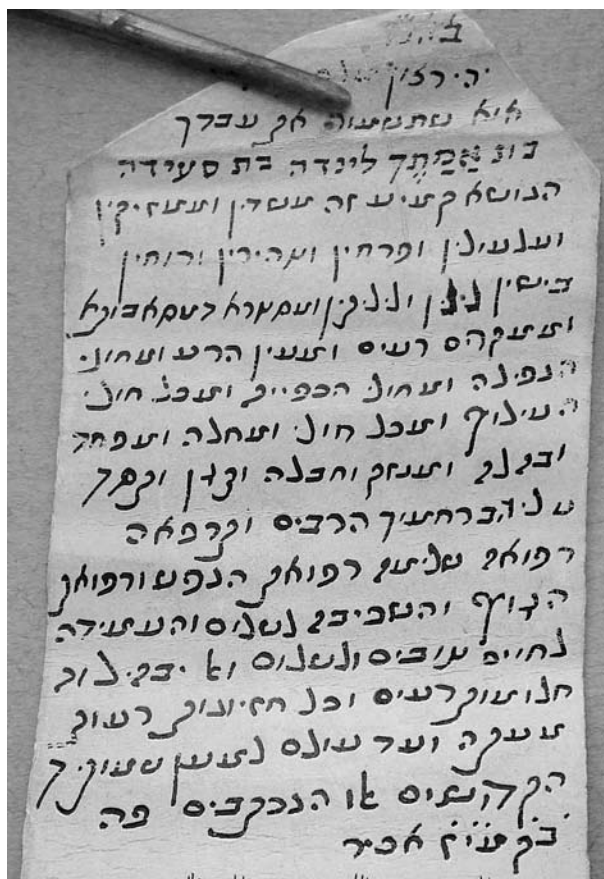 יהי רצון
אי"א שתשמור את עבדך
אמתך לינדה בת סעידה
הנושא קמיע זה משדין ומזיקין
ועלעולין ופרחין ומהירין ורוחין
בישין לילין ולילתין
וממקרים רעים ומעין הרע ומחולי
הנפילה ומחולי הכפייה ומכל חולי
העילוף ומכל חולי ומחלה ומפחד
ובהלה ומנזק וחבלה ותגן ותסך
עליה ברחמיך הרבים ותרפאה
רפואה שלימה רפואת הנפש ורפואת
הגוף והשכיבה לשלום והעמידה
לחיים טובים ולשלום ולא יבהילוה
חלומות רעים וכל חזיונות רעות
מעתה ועד עולם למען שמותיך
הקדושים או הנכתבים פה
בקמיע אכיר